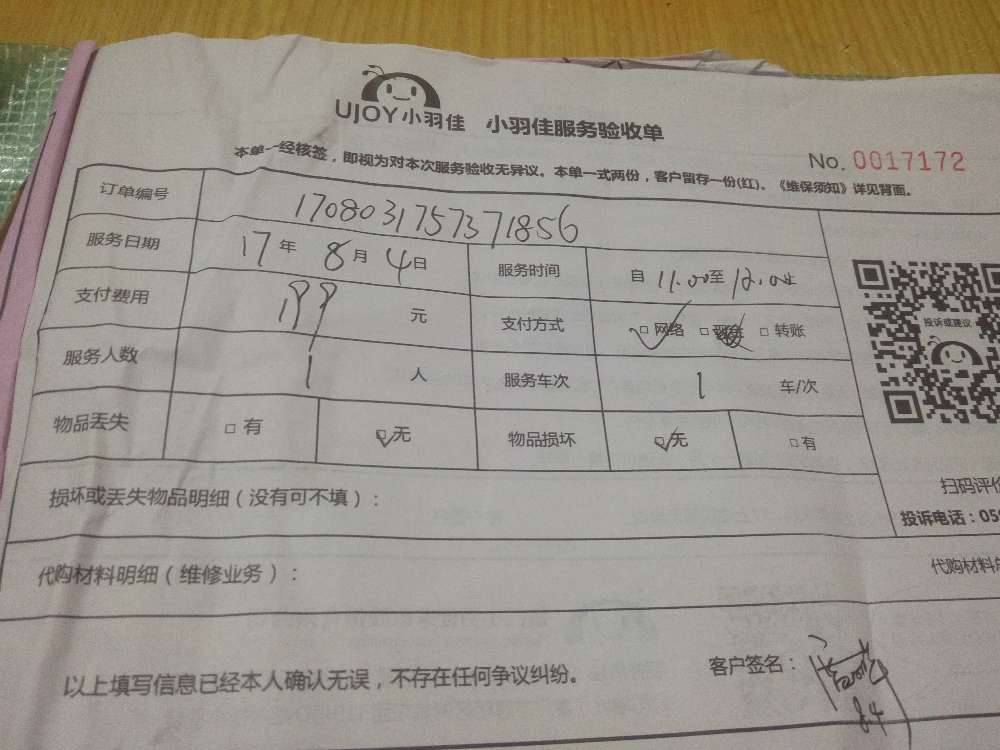 UJOY小羽佳 小羽佳服务验收单
No. 0017172
本单一经核签，即视为对本次服务验收无异议。本单一式两份，客户留存一份(红)。《维保须知》详见背面。
订单编号 170803175737 1856
服务日期 17年 8月 4日 服务时间 自 11:00至 12:00
支付费用 199 元 支付方式 □网络 □现金 □转账
投诉或建议
服务人数 1 人 服务车次 1 车/次
物品丢失 □有 □无 物品损坏 □无 □有
扫码评价
损坏或丢失物品明细（没有可不填）：
投诉电话：059
代购材料明细（维修业务）：
代购材料
以上填写信息已经本人确认无误，不存在任何争议纠纷。
客户签名：
8.4